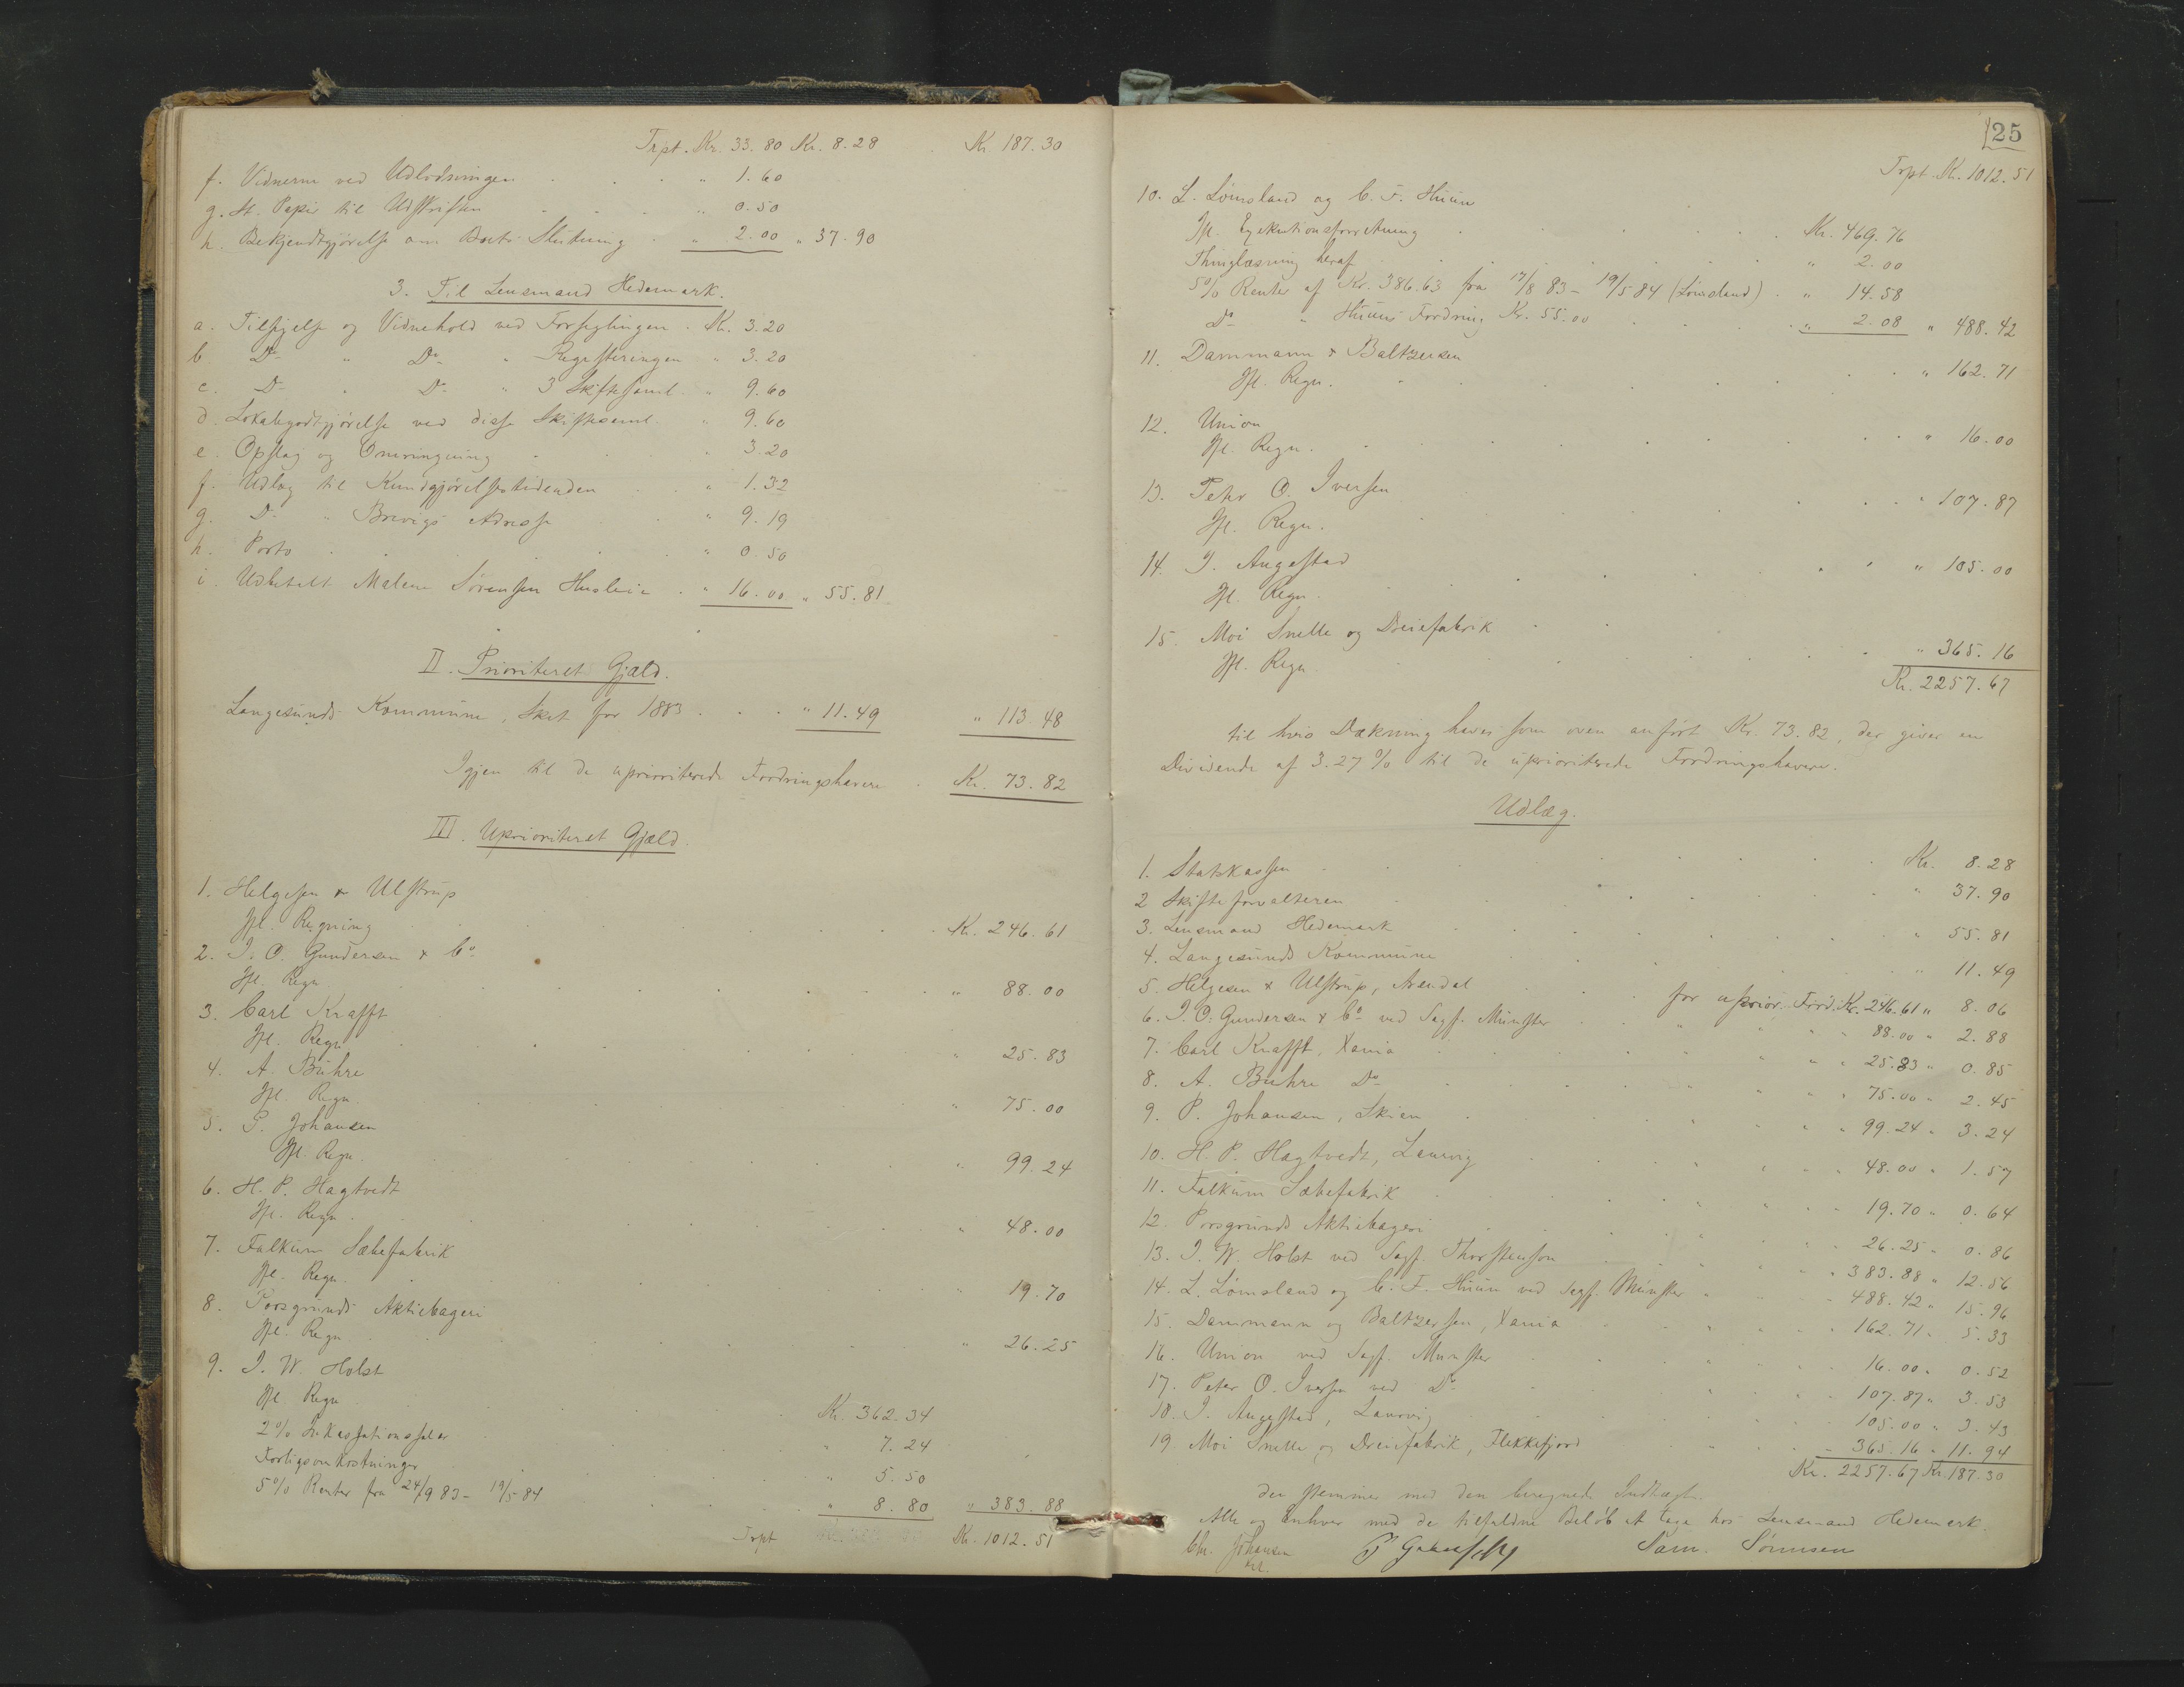 Trpt. Kr. 33.80 Kr. 8.28 Kr. 187.30
f. Vidnerne ved Udlodningen " 1.60
g. St. Papir til Udskriften " 0.50
h. Bekjendtgjørelse om Boets Slutning " 2.00 " 37.90
3. Til Lensmand Hedemark.
a. Tilsigelse og Vidnehold ved Forseglingen. Kr. 3.20
b. Do " Do " Registeringen " 3.20
c. Do " Do " 3 Skiftesaml. " 9.60
d. Lokalegodtgjørelse ved disse Skiftesaml. " 9.60
e. Opslag og Omringning " 3.20
f. Udlæg til Kundgjørelsestidenden " 1.32
g. Do " Brevigs Adresse " 9.19
h. Porto " 0.50
i. Udbetalt Malene Sørensen Husleie " 16.00 " 55.81
II. Prioriteret Gjæld.
Langesunds Kommune, Skat for 1883 " 11.49 " 113.48
Igjen til de uprioriterede Fordringshavere Kr. 73.82
III. Uprioriteret Gjæld.
1. Helgesen & Ulstrup
Ifl. Regning Kr. 246.61
2. I. O. Gundersen & Co
Ifl. Regn. " 88.00
3. Carl Krafft
Ifl. Regn " 25.83
4. A. Buhre
Ifl. Regn. " 75.00
5. P. Johansen
Ifl. Regn. " 99.24
6. H. P. Hagtvedt
Ifl. Regn. " 48.00
7. Falkum Sæbefabrik
Ifl. Regn. " 19.70
8. Porsgrunds Aktiebageri
Ifl. Regn " 26.25
9. I. W. Holst
Ifl. Regn Kr. 362.34
2% Inkassationssalær " 7.24
Forligsomkostninger " 5.50
5% Renter fra 24/9 83 - 19/5 84 " 8.80 " 383.88
Trpt Kr. 1012.51
125
Trpt. Kr. 1012.51
10. L. Lømsland og C. F. Huun
Ifl. Exekutionsforretning Kr. 469.76
Thinglæsning heraf " 2.00
5% Renter af Kr. 386.63 fra 17/8 83 - 19/5 84 (Lømsland) " 14.58
Do " Huuns Fordring Kr. 55.00 " 2.08 " 488.42
11. Dammann & Baltzersen
Ifl. Regn. " 162.71
12. Union
Ifl. Regn. " 16.00
13. Peter O. Iversen
Ifl. Regn. " 107.87
14. I. Angestad
Ifl. Regn. " 105.00
15. Moi Snelle og Dreiefabrik
Ifl. Regn " 365.16
Kr. 2257.67
til hvis Dækning haves som oven anført Kr. 73.82, der giver en
Dividende af 3.27% til de uprioriterede Fordringshavere.
Udlæg.
1. Statskassen Kr. 8.28
2 Skifteforvalteren " 37.90
3. Lensmand Hedemark " 55.81
4. Langesunds Kommune " 11.49
5. Helgesen & Ulstrup, Arendal for uprior. Ford. Kr. 246.61 " 8.06
6. I. O. Gundersen & Co ved Sagf. Münster " 88.00 " 2.88
7. Carl Krafft, Xania " 25.83 " 0.85
8. A. Buhre Do " 75.00 " 2.45
9. P. Johansen, Skien " 99.24 " 3.24
10. H. P. Hagtvedt, Laurvig " 48.00 " 1.57
11. Falkum Sæbefabrik " 19.70 " 0.64
12. Porsgrunds Aktiebageri " 26.25 " 0.86
13. I. W. Holst ved Sagf. Thorstenson " 383.88 " 12.56
14. L. Lømsland og C. F. Huun ved Sagf. Münster " 488.42 " 15.96
15. Dammann og Baltzersen, Xania " 162.71 " 5.33
16. Union ved Sagf. Munster " 16.00 " 0.52
17. Peter O. Iversen ved Do " 107.87 " 3.53
18. I. Angestad, Laurvig " 105.00 " 3.43
19. Moi Snelle og Dreiefabrik, Flekkefjord " 365.16 " 11.94
Kr. 2257.67 Kr. 187.30
der stemmer med den beregnede Indtægt.
Alle og Enhver med de tilfaldne Beløb at tage hos Lensmand Hedemark.
Chr. Johansen Sam. Sørensen